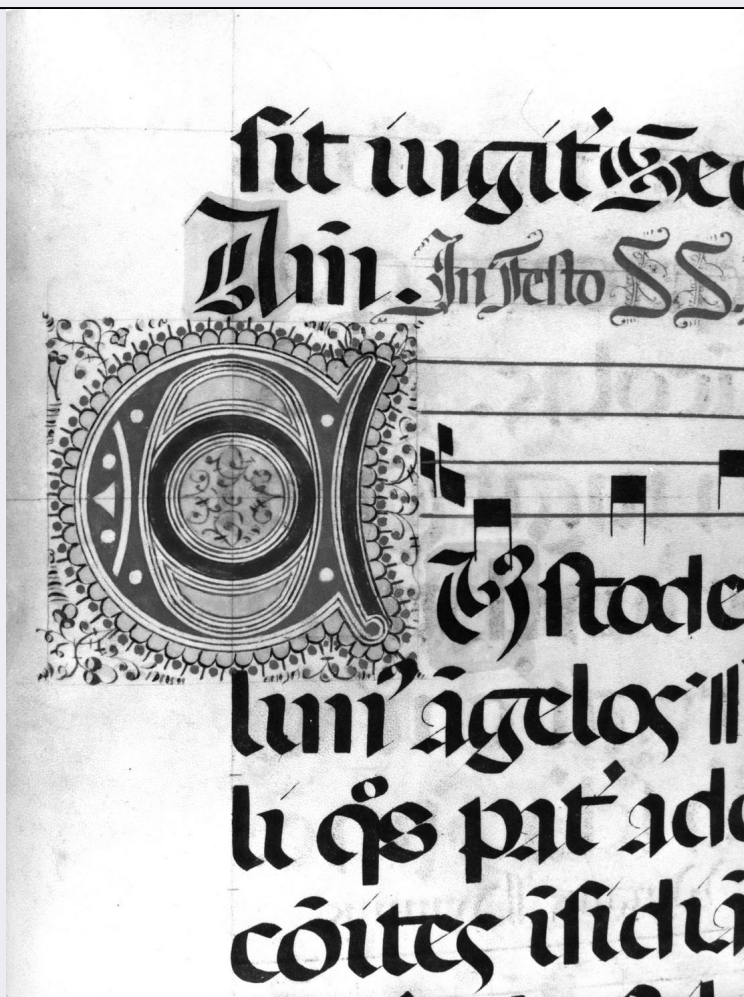 ſit iugit᾽ Sec
Am̄. In Feſto SS.
CVſtode
lim᾽ āgelos
li qͦs pat᾽ add
cōites īſidiā